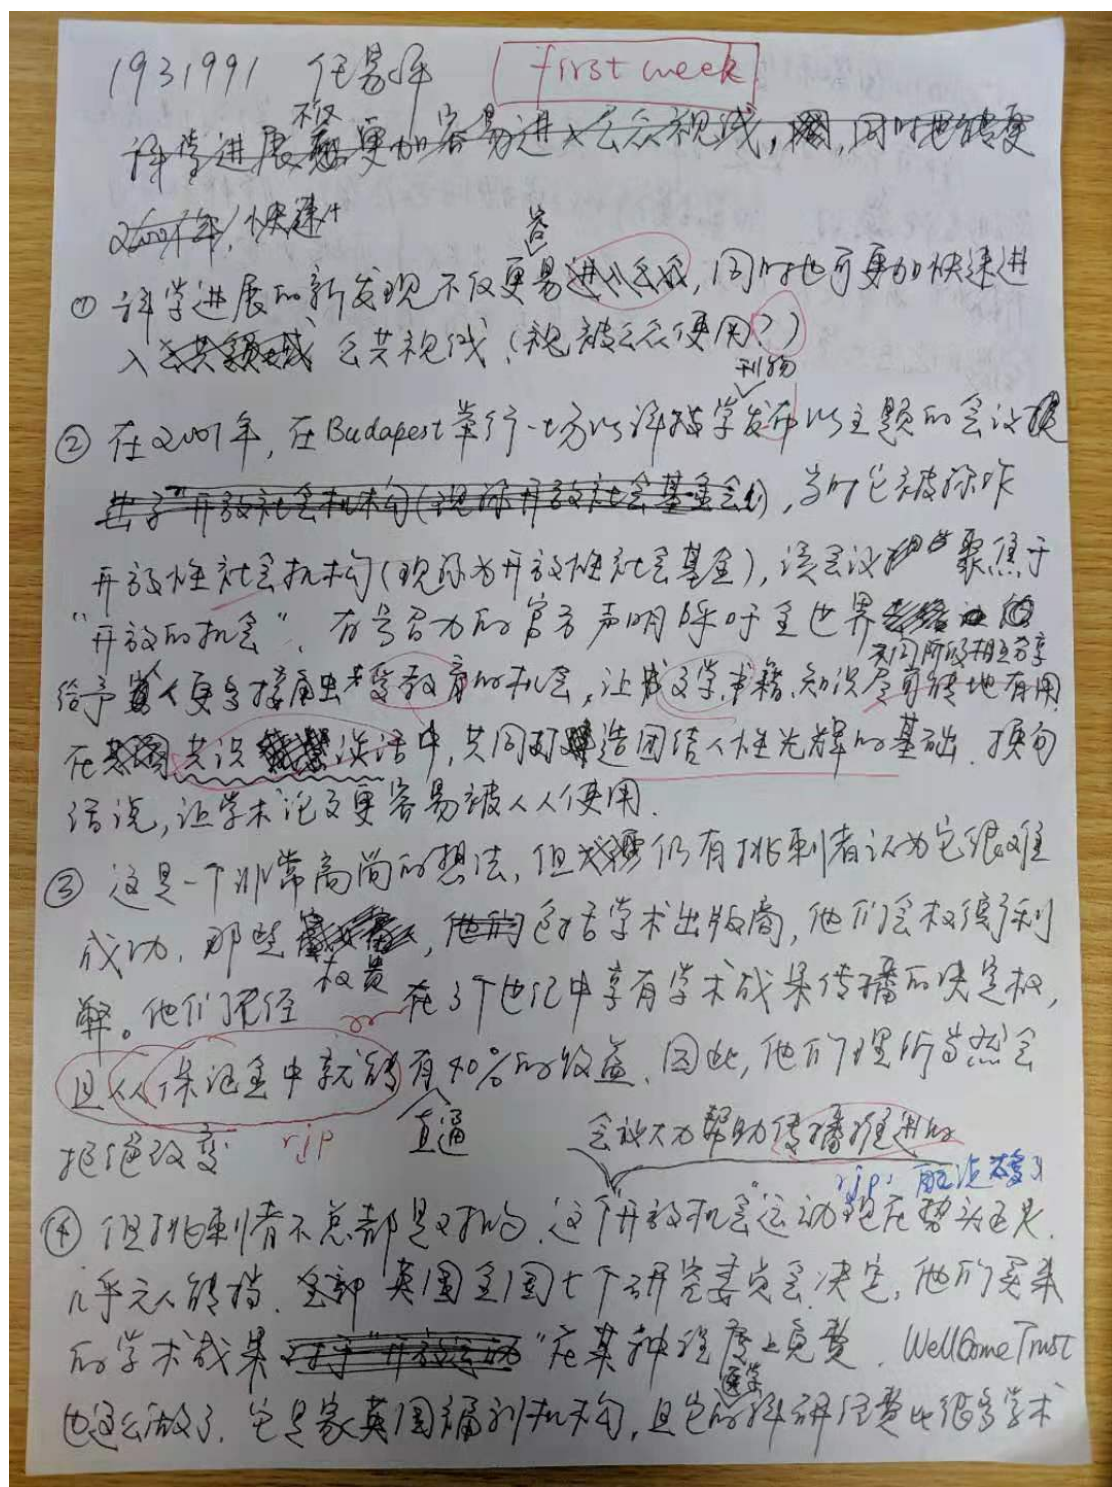 1931991 任易 first week
不仅
科学进展更加容易进入公众视域,同时也能更
2001年,快速
容
① 科学进展的新发现不仅更易进入公众,同时也可更加快速进
入公共领域 公共视线(被公众使用?)
刊物
② 在2001年,在Budapest举行一场以科学发布以主题的会议
"开放社会机构(现称开放社会基金会),当时它被称作
开放性社会机构(现称为开放性社会基金),该会议 聚焦于
"开放的机会",有号召力的官方声明呼吁全世界
不同阶级相互分享
给予人更多接触受教育的机会,让文学、书籍、知识尽可能地有用
在 共识 谈话中,共同 造团结人性光辉的基础.换句
话说,让学术论文更容易被人人使用.
③ 这是一个非常高尚的想法,但 仍有挑刺者认为它很难
成功.那些 ,他们包括学术出版商,他们会权衡利
权贵
弊。他们已经 在3个世纪中享有学术成果传播的决定权,
且从保证金中就能有40%的收益.因此,他们理所当然会
rjp 直逼
拒绝改变
会被大力帮助传播推进的
rjp:
④ 但挑刺者不总都是对的.这个"开放机会"运动现在势头正足.
几乎无人能挡.全部 英国全国七个研究委员会决定,他们买来
的学术成果 "在某种程度上免费.Wellcome Trust
医学
也这么做了.它是家英国福利机构,且它的科研经费比很多学术